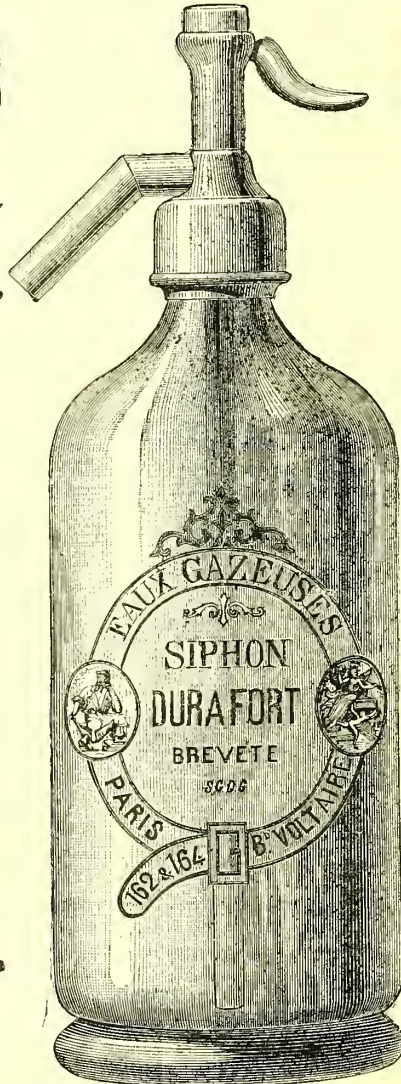 EAUX GAZEUSES
SIPHON
DURAFORT
BREVETE
SGDG
PARIS
162 & 164 Bd VOLTAIRE